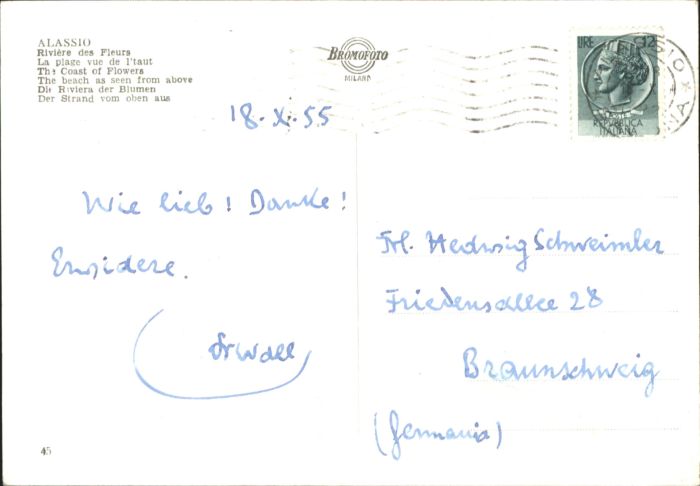 ALASSIO
Rivière des Fleurs
La plage vue de l'taut
The Coast of Flowers
The beach as seen from above
Die Riviera der Blumen
Der Strand vom oben aus
BROMOFOTO
MILANO
LIRE 12
REPVBBLICA
ITALIANA
18.X.55
Wie lieb! Danke!
Erwidere.
Frl. Hedwig Schweimler
Friedensallee 28
Braunschweig
(Germania)
45